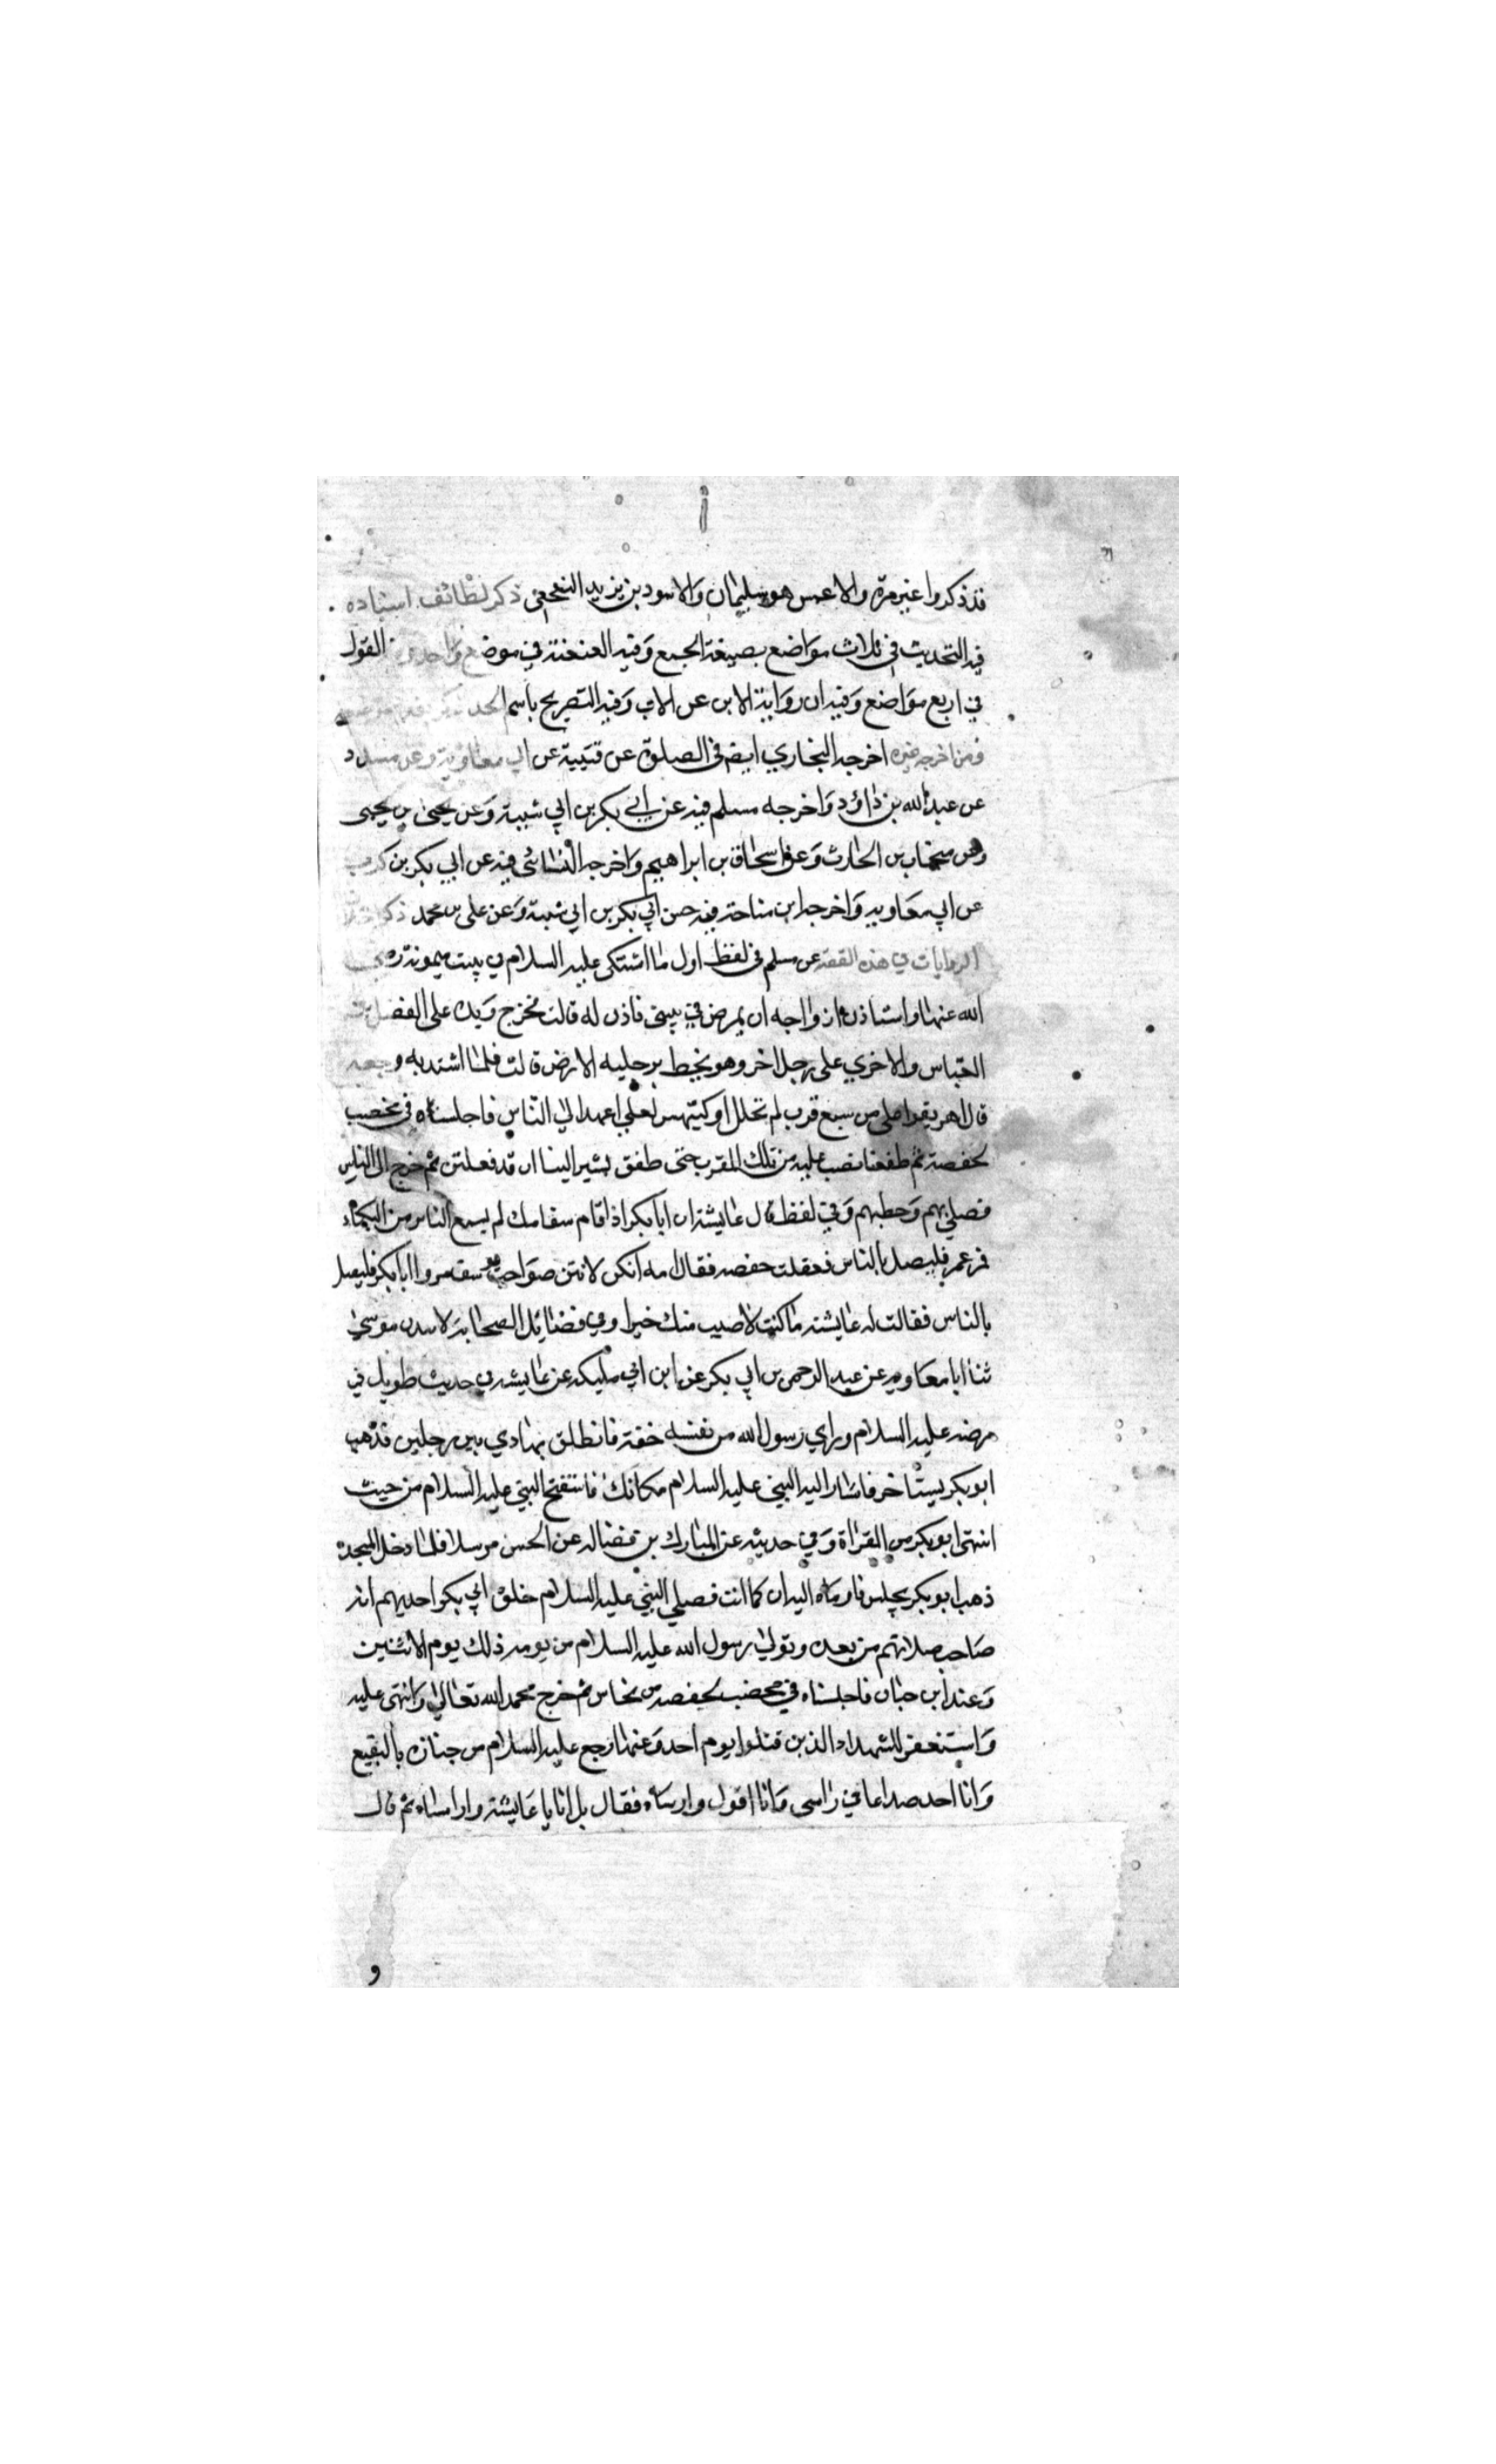 قد ذكروا غير مرة والاعمش هو سليمان والاسود بن يزيد النخعي ذكر لطائف اسناده
فيه التحديث في ثلاث مواضع بصيغة الجمع وفيه العنعنة في موضع واحد القول
في اربع مواضع وفيه ان رواية الابن عن الاب وفيه التصريح باسم الجد
ومن اخرجه غيره اخرجه البخاري ايضا في الصلوة عن قتيبة عن ابي معاوية وعن مسدد
عن عبد الله بن داؤد واخرجه مسلم فيه عن ابي بكر بن ابي شيبة وعن يحيى بن يحيى
وعن منجاب بن الحارث وعن اسحاق بن ابراهيم واخرجه النسائي فيه عن ابي بكر بن كريب
عن ابي معاويه واخرجه ابن ماجة فيه عن ابي بكر بن ابي شيبة وعن علي بن محمد ذكر
الروايات في هذه القصة عن مسلم في لفظ اول ما اشتكى عليه السلام في بيت ميمونة
الله عنها واستاذن ازواجه ان يمرض في بيتي فاذن له قالت فخرج ويده على الفضل
العباس والاخري على رجل اخر وهو يخط برجليه الارض قالت فلما اشتد به وجعه
قال اهريقوا علي من سبع قرب لم تحلل اوكيتهن لعلي اعهد الى الناس فاجلسناه في مخضب
لحفصة ثم طفقنا نصب عليه من تلك القرب حتى طفق يشير الينا ان قد فعلتن ثم خرج الى الناس
فصلي بهم وخطبهم وفي لفظ قال عايشة ان ابا بكر اذا قام مقامك لم يسمع الناس من البكاء
فمر عمر فليصل بالناس ففعلت حفصه فقال مه انكن لانتن صواحب يوسف مروا ابا بكر فليصل
بالناس فقالت له عايشة ما كنت لاصيب منك خيرا وفي فضائل الصحابة لاسد بن موسى
ثنا ابا معاويه عن عبد الرحمن بن ابي بكر عن ابن ابي مليكه عن عايشه في حديث طويل في
مرضه عليه السلام وراي رسول الله من نفسه خفة فانطلق يهادي بين رجلين فذهب
ابو بكر يستاخر فاشار اليه النبي عليه السلام مكانك فاستفتح النبي عليه السلام من حيث
انتهى ابو بكر من القراة وفي حديثه عن المبارك بن فضاله عن الحسن مرسلا فلما دخل المسجد
ذهب ابو بكر يجلس فاوماه اليه ان كما انت فصلي النبي عليه السلام خلف ابي بكر احديهم انه
صاحب صلاتهم من بعده وتولي رسول الله عليه السلام من يومه ذلك يوم الاثنين
وعند ابن حبان فاجلسناه في مخضب لحفصه من نحاس ثم خرج محمد الله تعالي واثنى عليه
واستغفر للشهداء الذين قتلوا يوم احد وعنها رجع عليه السلام من جنازه بالبقيع
وانا اجد صداعا في راسي وانا اقول واراساه فقال بل انا يا عايشة واراساه ثم قال
و